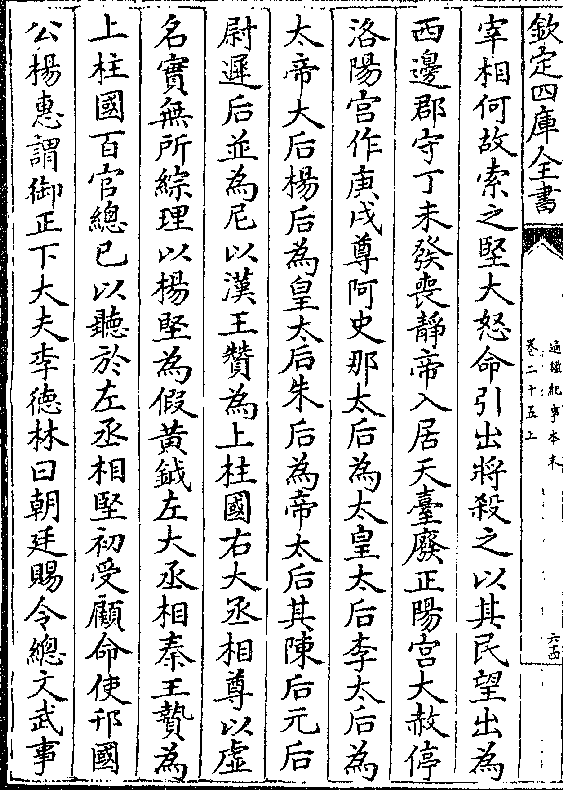 欽定四庫全書
通鑑紀事本末
卷二十五上
六十四
宰相何故索之堅大怒命引出將殺之以其民望出為
西邊郡守丁未發喪靜帝入居天臺廢正陽宮大赦停
洛陽宮作庚戌尊阿史那太后為太皇太后李太后為
太帝太后楊后為皇太后朱后為帝太后其陳后元后
尉遲后並為尼以漢王贊為上柱國右大丞相尊以虛
名實無所綜理以楊堅為假黃鉞左大丞相秦王贄為
上柱國百官總己以聽於左丞相堅初受顧命使邗國
公楊惠謂御正下大夫李德林曰朝廷賜令總文武事